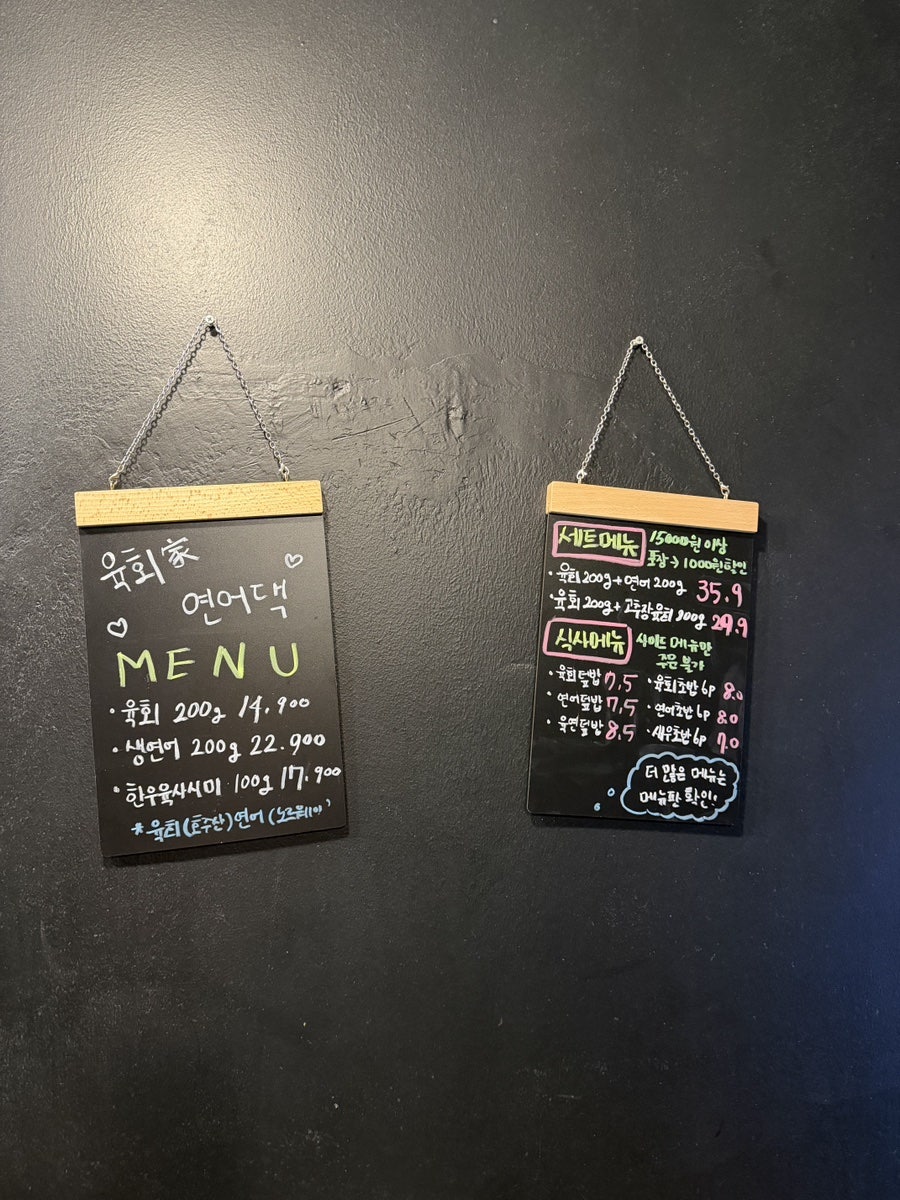 육회家
연어댁
MENU
· 육회 200g 14.900
· 생연어 200g 22.900
· 한우육사시미 100g 17.900
* 육회(호주산) 연어(노르웨이)
세트메뉴 15000원 이상
포장→1000원할인
· 육회 200g + 연어 200g 35.9
· 육회 200g + 고추장육회 200g 29.9
식사메뉴 사이드 메뉴만
주문 불가
· 육회덮밥 7.5 · 육회초밥 6p 8.0
· 연어덮밥 7.5 · 연어초밥 6p 8.0
· 육연덮밥 8.5 · 새우초밥 6p 7.0
더 많은 메뉴는
메뉴판 확인!